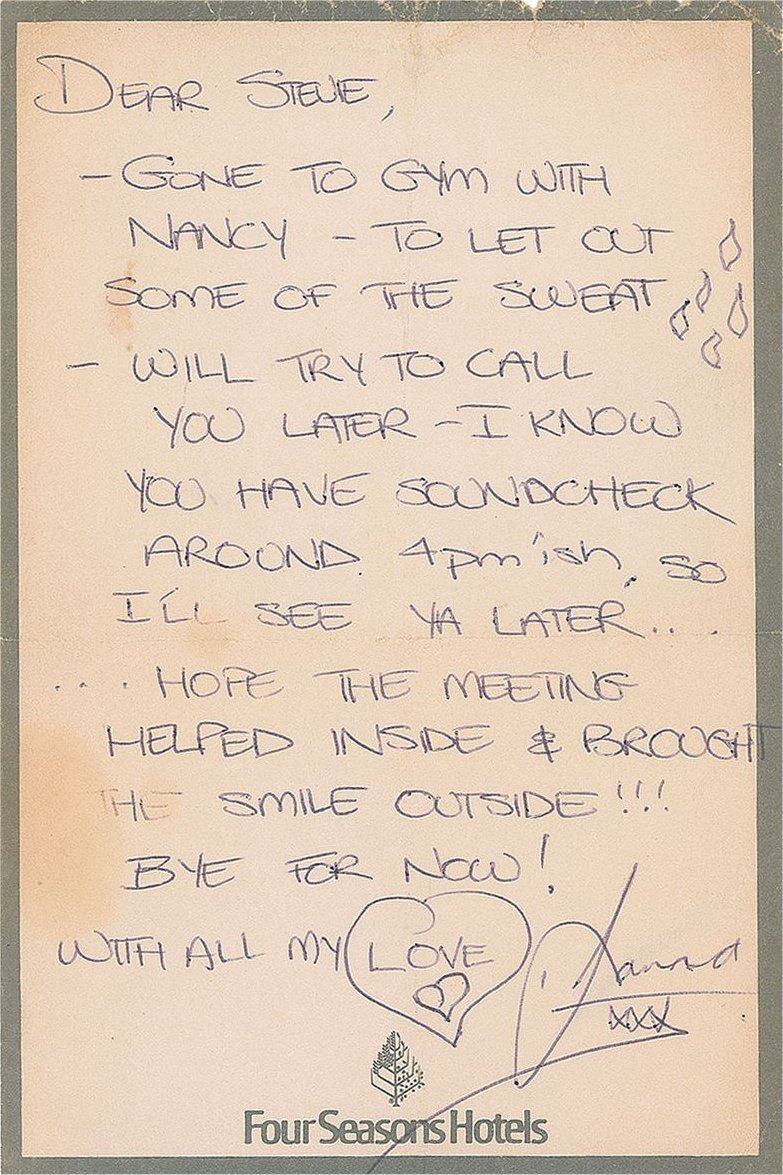 DEAR STEVIE,
- GONE TO GYM WITH
NANCY - TO LET OUT
SOME OF THE SWEAT
- WILL TRY TO CALL
YOU LATER - I KNOW
YOU HAVE SOUNDCHECK
AROUND 4pm'ish, SO
I'LL SEE YA LATER....
....HOPE THE MEETING
HELPED INSIDE & BROUGHT
THE SMILE OUTSIDE!!!
BYE FOR NOW!
WITH ALL MY LOVE
xxx
Four Seasons Hotels